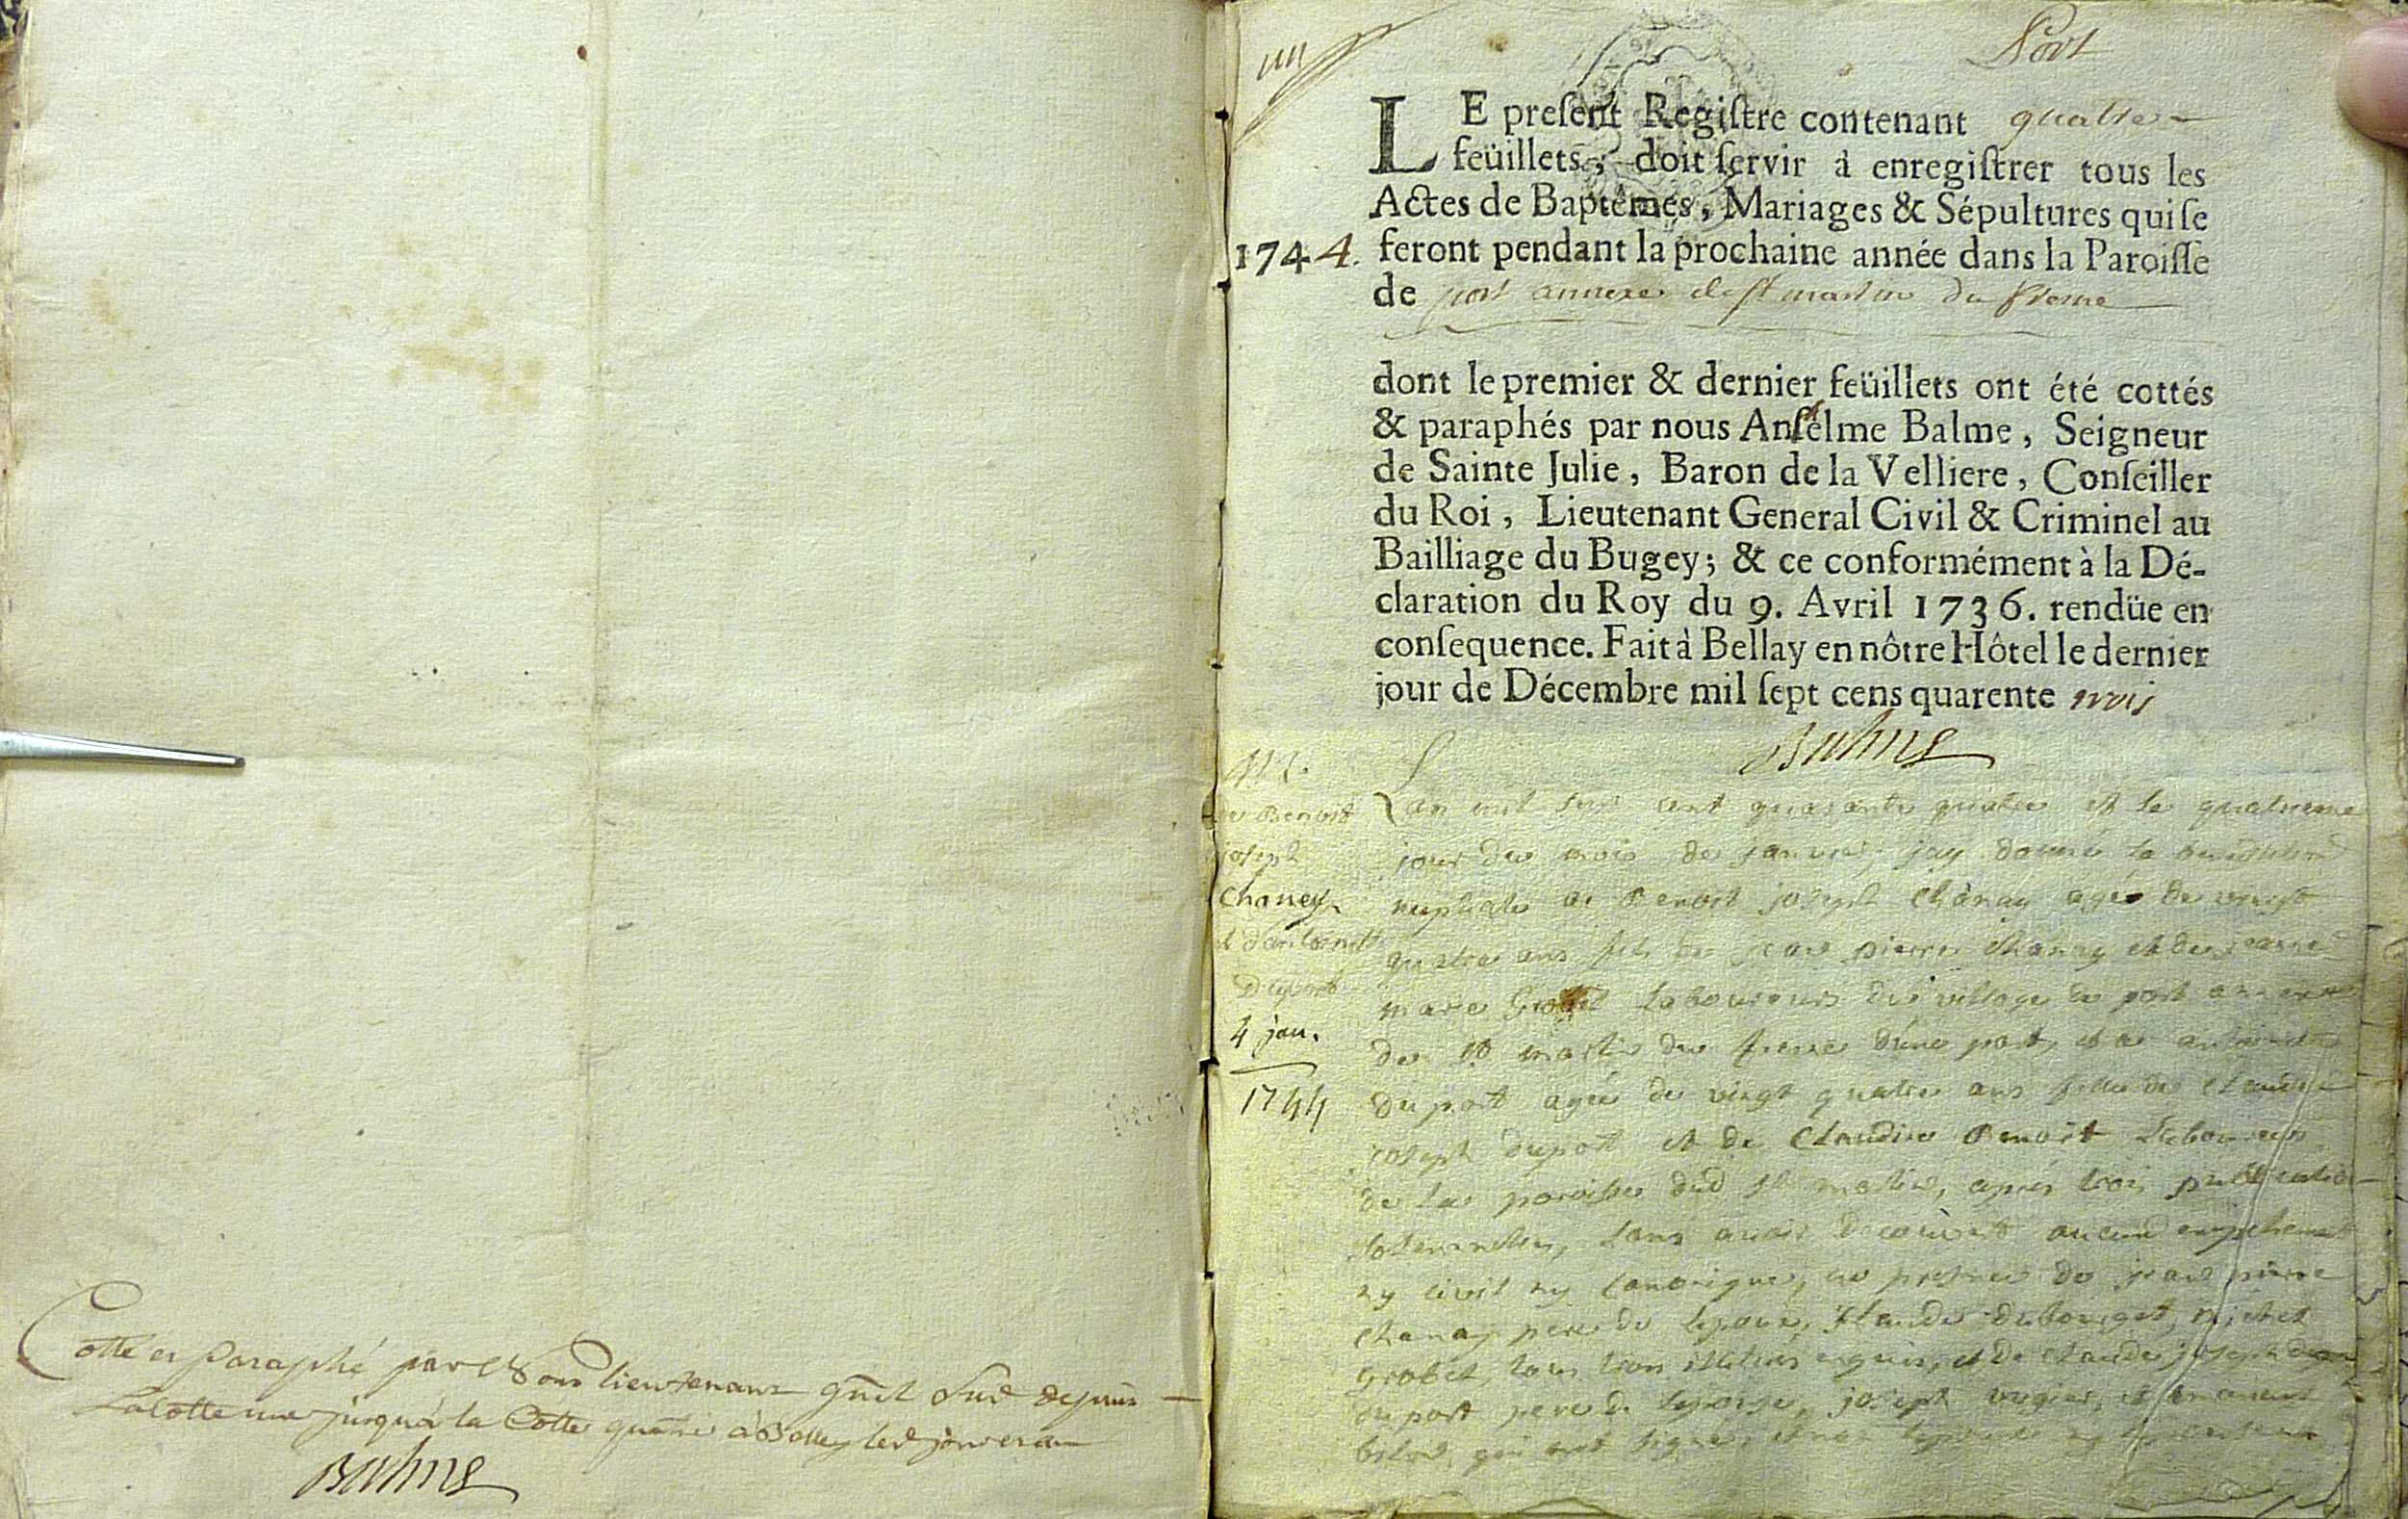 Cotté et Paraphé par Nous lieutenant gñal Sud depuis
La Cotte une jusqu'a la Cotte quatre a Belley led jour et an
Balme
Port
LE preſent Regiſtre contenant quatre
feüillets, doit ſervir à enregiſtrer tous les
Actes de Baptêmes, Mariages & Sépultures qui ſe
1744. feront pendant la prochaine année dans la Paroiſſe
de port annexe de st martin du fresne
dont le premier & dernier feüillets ont été cottés
& paraphés par nous Anſelme Balme, Seigneur
de Sainte Julie, Baron de la Velliere, Conſeiller
du Roi, Lieutenant General Civil & Criminel au
Bailliage du Bugey; & ce conformément à la Dé-
claration du Roy du 9. Avril 1736. rendüe en
conſequence. Fait à Bellay en nôtre Hôtel le dernier
jour de Décembre mil ſept cens quarente trois
Balme
de Benoit
joseph
Chaney
et d'antoinette
Duport
4 jan.
1744
Lan mil sept cent quarante quatre et le quatrieme
jour du mois de janvier, jay donné la benediction
nuptiale a Benoit joseph Chanay agé de vingt
quatre ans fils de jean pierre Chanay et de jeanne
marie Grobet laboureurs du village de port annexe
de st martin du fresne d'une part, et a antoinette
duport agée de vingt quatre ans fille de Claude
joseph duport et de Claudine Benoit laboureurs
de la paroisse dud st martin, apres trois publication
solemnelles, sans avoir decouvert aucun empechement
ny civil ny canonique, en presence de jean pierre
Chanay pere de lepoux, Claude dubouget, michel
Grobet, tous trois illiterés enquis, et de Claude joseph
duport pere de lepouse, joseph et
qui ont signé,